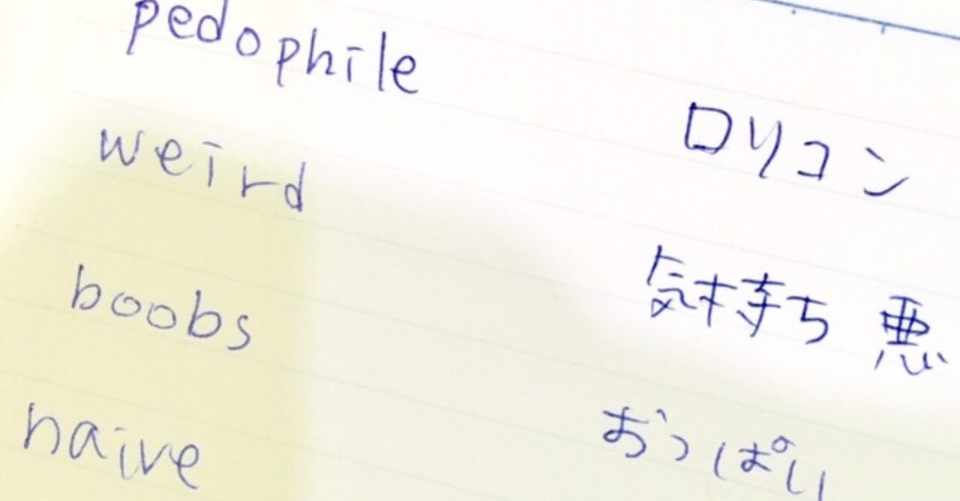 pedophile
ロリコン
weird
気持ち悪
boobs
おっぱい
naive